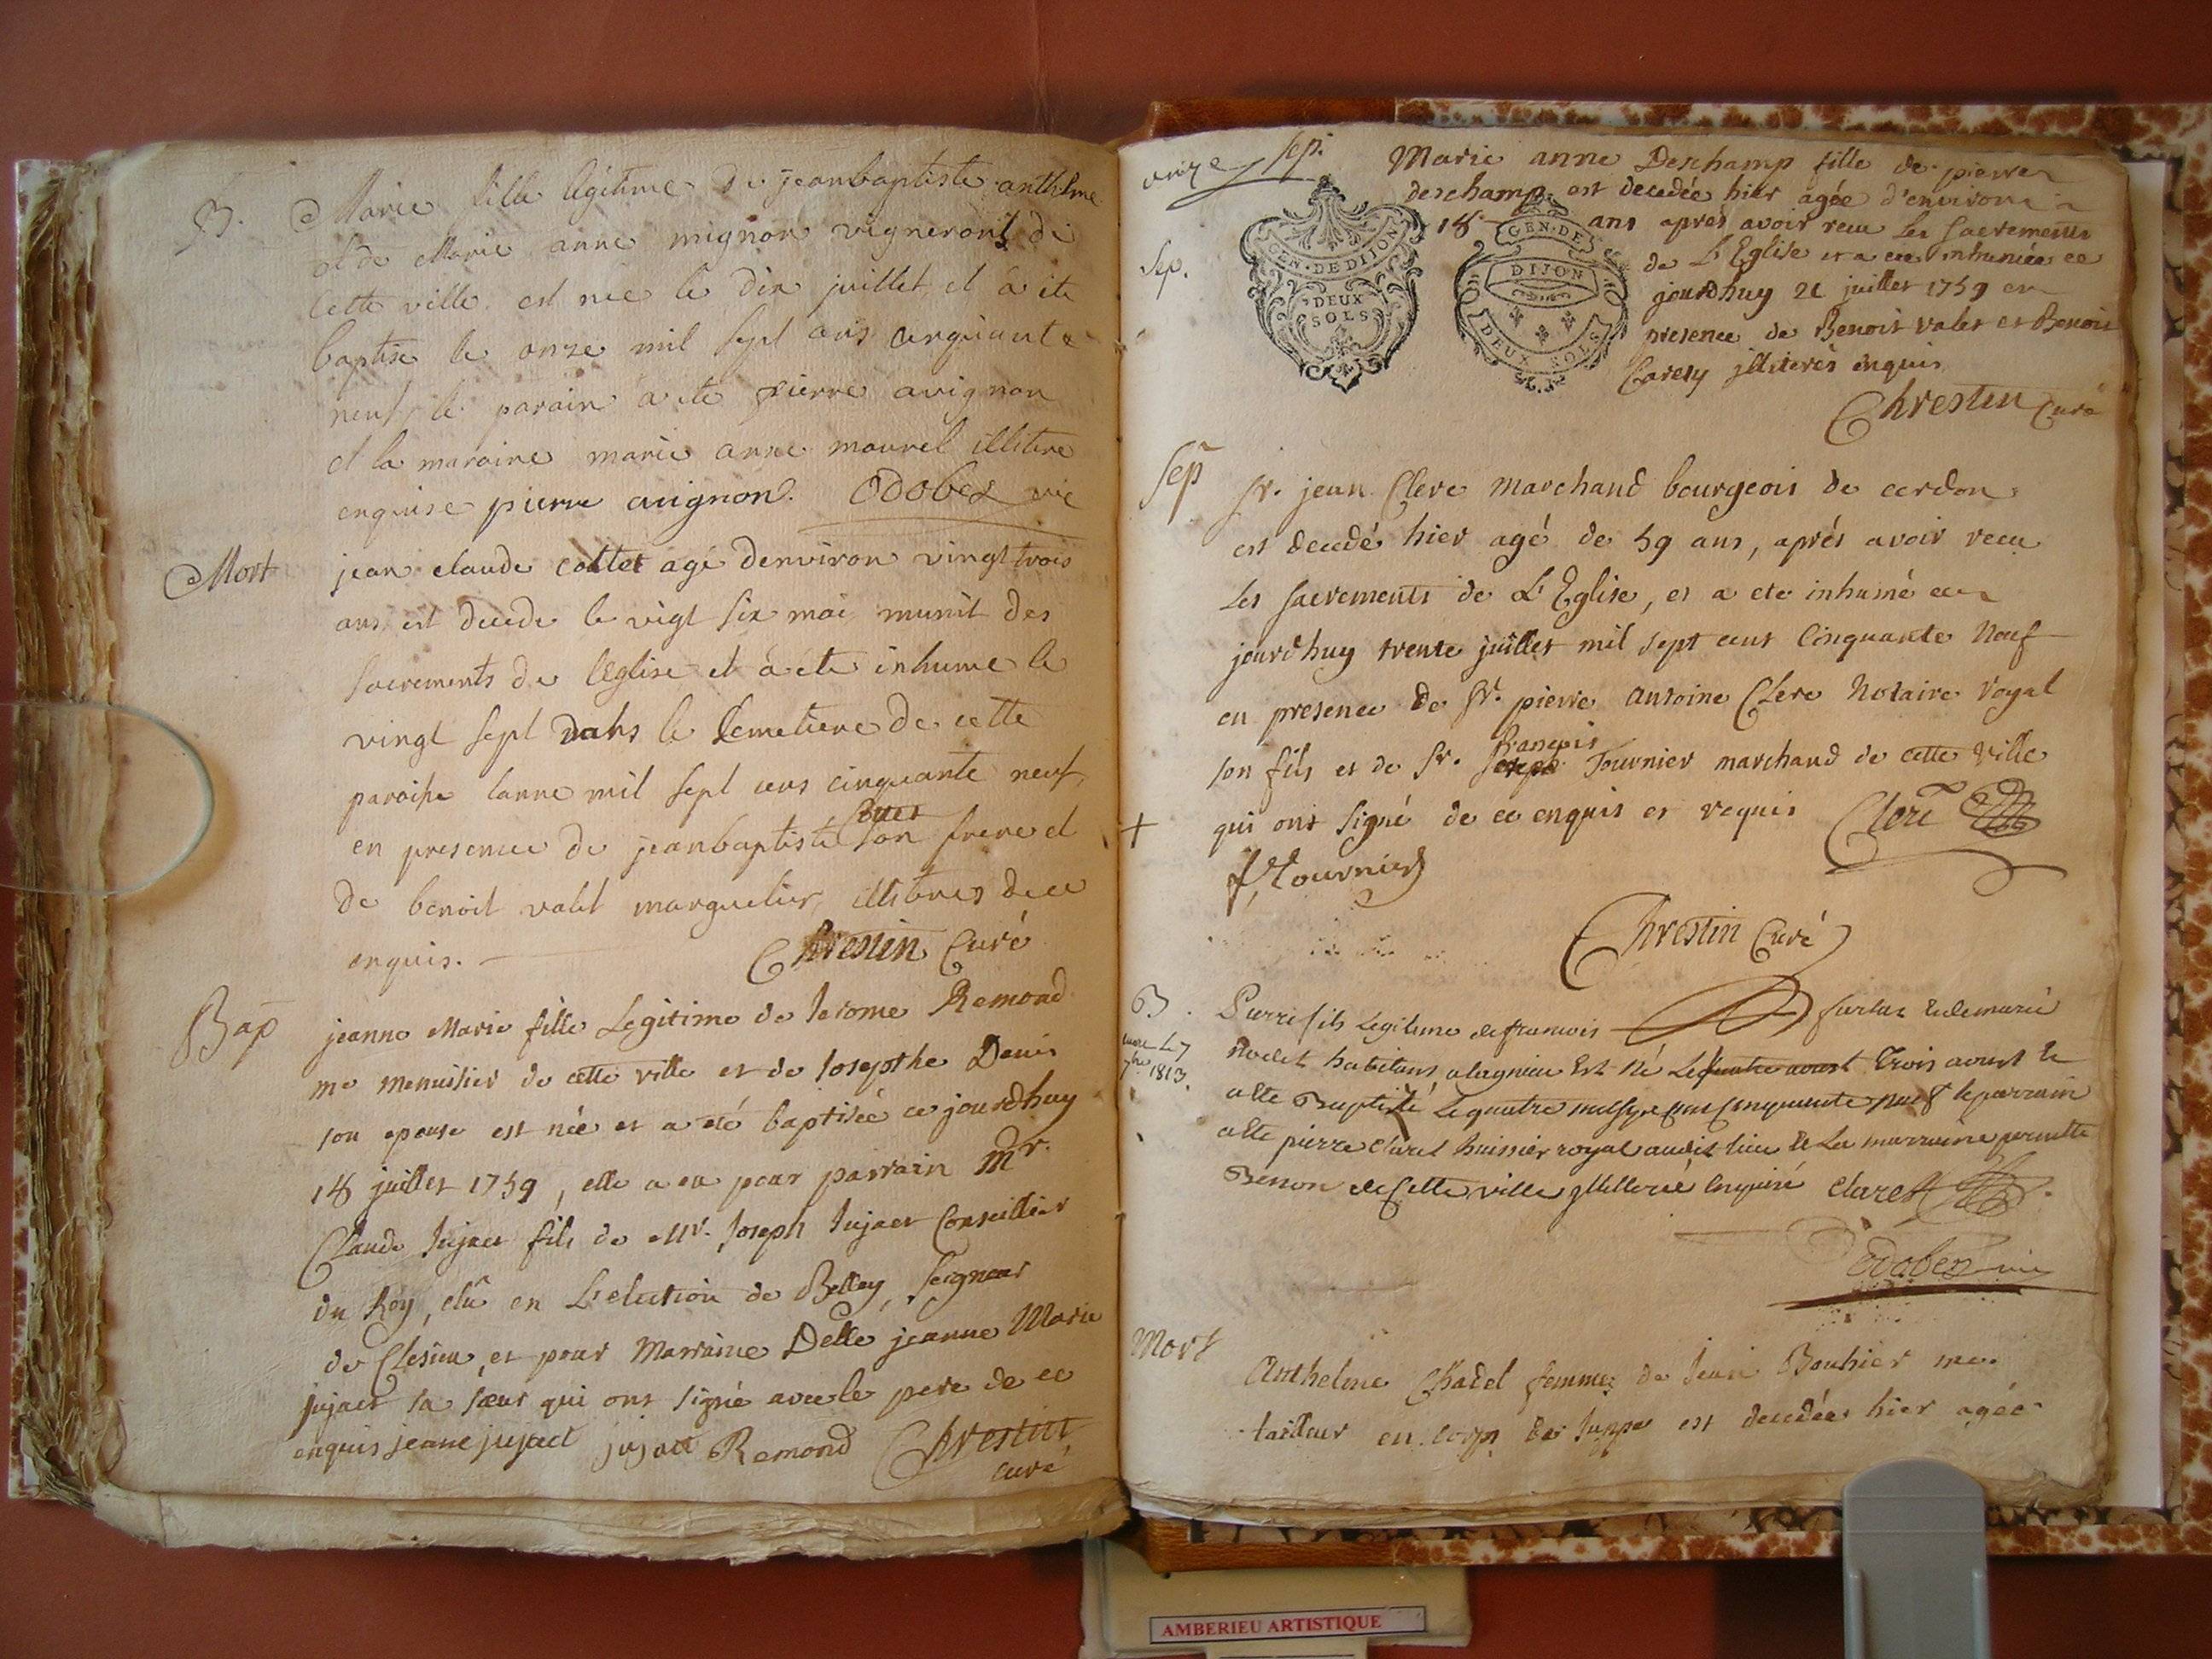 B.
Marie fille légitime de jeanbaptiste anthelme
et de Marie anne mignon vignerons de
Cette ville est née le dix juillet et à ete
baptisé le onze mil sept cens cinquante
neuf, le parain a ete pierre avignon
et la maraine marie anne maurel illitere
enquise pierre avignon. Odobez vic
Mort
jean claude collet agé denviron vingt trois
ans est decede le vigt six mai munit des
sacrements de l'Eglise et à ete inhume le
vingt sept dans le Cemetiere de cette
paroisse lanne mil sept cens cinquante neuf,
en presence de jeanbaptiste son frere et
de benoit valet marguelier, illiteres de ce
enquis. Chrestin Curé
Bap
jeanne Marie fille Legitime de Jerome Remond
me menuisier de cette ville et de Josepthe Denis
son epouse est née et a eté baptisée ce jourdhuy
18 juillet 1759, elle a eu pour parrain Mr.
Claude Jujact fils de Mr. Joseph Jujact Conseiller
du Roy, elû en L'election de Belley, Seigneur
de Clesieu, et pour Marraine Delle jeanne Marie
jujact sa sœur qui ont signé avec le pere de ce
enquis jeane jujact jujact Remond Chrestin
curé
onze Sep.
Sep.
Marie anne Deschamp fille de pierre
deschamp est decedée hier agée d'environ
18 ans après avoir recu Les Sacrements
de L'Eglise et a ete inhumée ce
jourdhuy 21 juillet 1759 en
presence de Benoit valet et Benoit
jlliterés enquis
Chrestin Curé
GEN. DE DIJON
DEUX
SOLS
GEN. DE
DIJON
DEUX SOLS
Sep
Sr. jean Clerc marchand bourgeois de cerdon
est decedé hier agé de 59 ans, aprés avoir recu
Les sacrements de L'Eglise, et a ete inhumé ce
jourdhuy trente juillet mil sept cent Cinquante Neuf
en presence de Sr. pierre Antoine Clerc Notaire Royal
françois
son fils et de Sr. joseph Tournier marchand de cette ville
+
qui ont signé de ce enquis et requis Clerc
f, Tournier
Chrestin Curé
B.
Le 7
1813.
Pierre fils Legitime de francois et de marie
nodet habitans a lagnieu Est Né Le quatre aoust trois aoust et
a ete Baptisé Le quatre mil sept cens cinquante neuf le parrain
a ete pierre Claret huissier royal audit lieu et La marraine pernette
Benon de Cette ville jllitterée Enquise Claret
Odobez vic
Mort
Anthelme Chadel femme de Jean Bouhier me.
tailleur en corps de juppe est decedée hier agée
AMBERIEU ARTISTIQUE